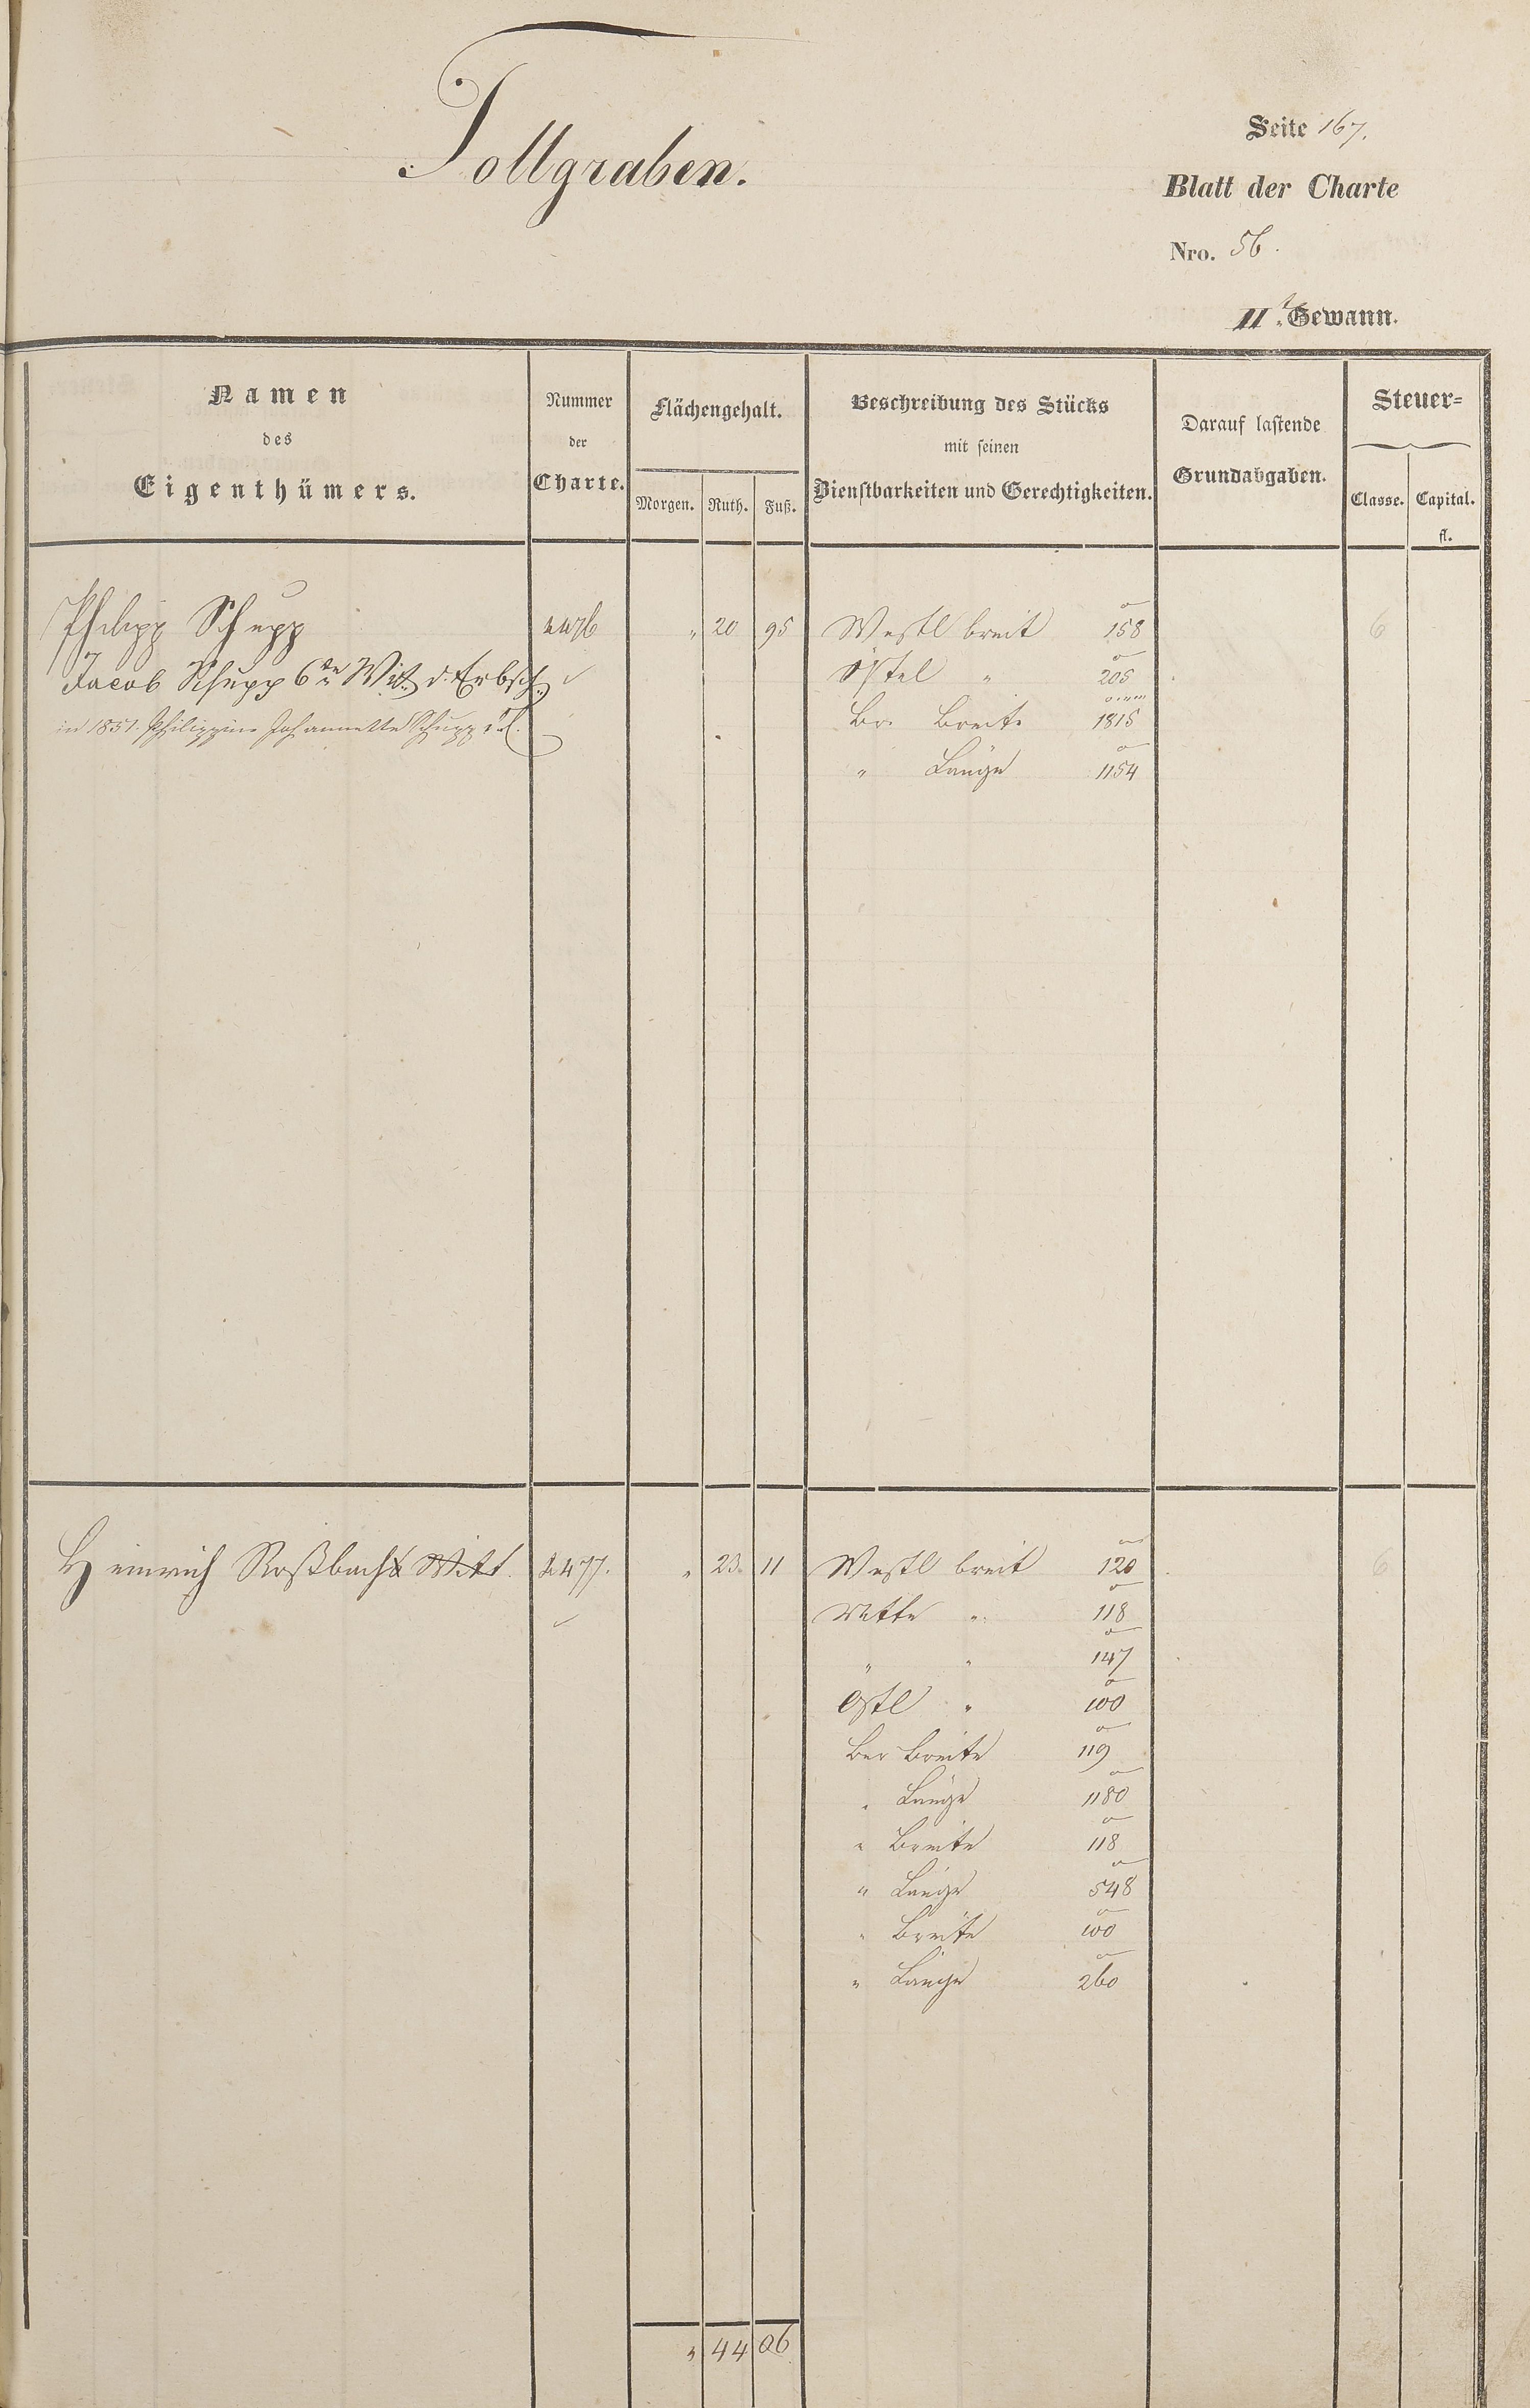 Tollgraben.
Seite 167.
Blatt der Charte
Nro. 56.
IIt. Gewann.
Namen
des
Eigenthümers.
Nummer
der
Charte.
Flächengehalt.
Morgen. Ruth. Fuß.
Beschreibung des Stücks
mit seinen
Dienstbarkeiten und Gerechtigkeiten.
Darauf lastende
Grundabgaben.
Steuer=
Classe. Capital.
fl.
Philipp Schupp 2476 " 20 95 Westl breit 158 6
Jacob Schupp 6tn Wit. d. Erbsch. Östel " 205
in 1851. Philippine Johannette Schupp Br. Breite 1815
" Länge 1154
Heinrich Roßbach Witt. 2477. " 23. 11 Westl breit 120 6
Mitte " 118
" " 147
Östl " 100
Ber Breite 119
" Länge 1180
" Breite 118
" Länge 548
" Breite 100
" Länge 260
" 44 06